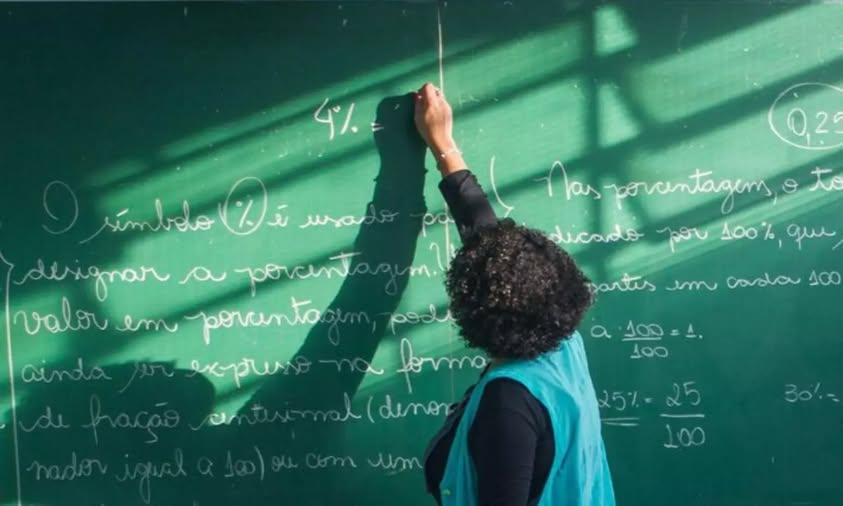 4% =
O símbolo % é usado pa
designar a porcentagem.
valor em porcentagem, pod
ainda ser expresso na forma
de fração centesimal (denomi
nador igual a 100) ou com um
0,25
Nas porcentagens, o to
dicado por 100%, que
partes em cada 100
a 100/100 = 1.
25% = 25/100
30% =